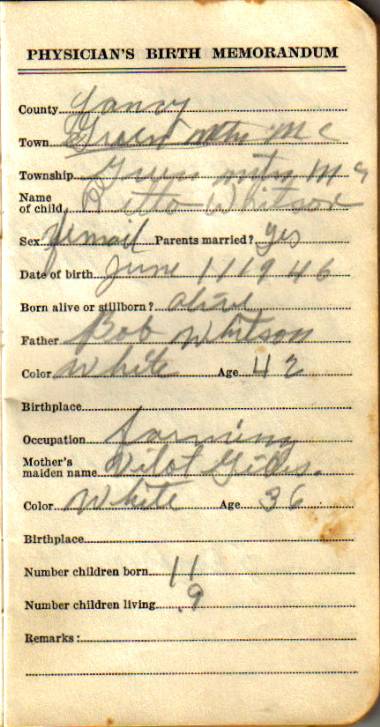 PHYSICIAN'S BIRTH MEMORANDUM
County Yancy
Town Green mtn N C
Township Green mtn N C
Name
of child Retto Whitson
Sex femail Parents married? yes
Date of birth June 11 1946
Born alive or stillborn? alive
Father Bob Whitson
Color White Age 42
Birthplace
Occupation farming
Mother's
maiden name Vilot
Color White Age 36
Birthplace
Number children born 11
Number children living 9
Remarks: